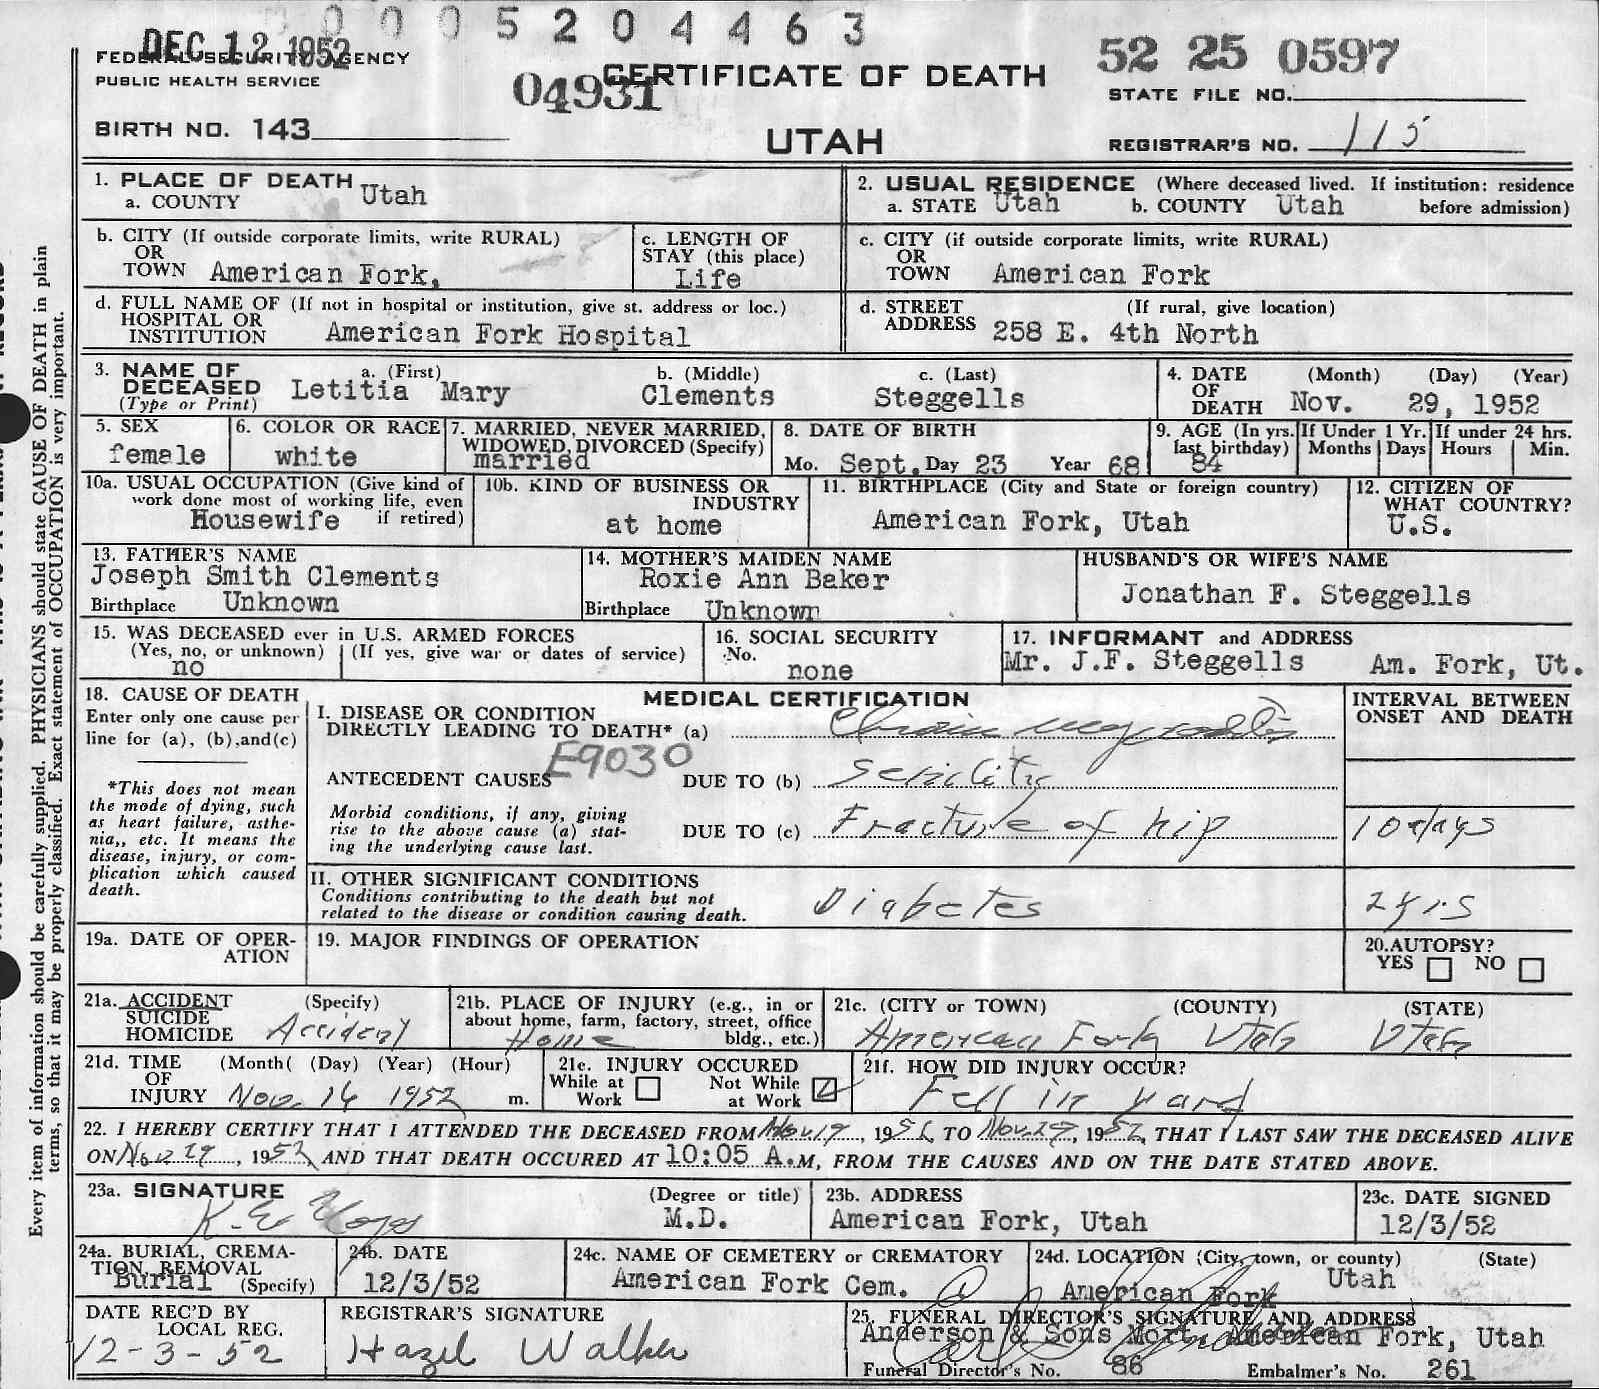 0005204463
DEC 12 1952
FEDERAL SECURITY AGENCY
PUBLIC HEALTH SERVICE
04931
CERTIFICATE OF DEATH
52 25 0597
STATE FILE NO.
BIRTH NO. 143
UTAH
REGISTRAR'S NO. 115
Every item of information should be carefully supplied. PHYSICIANS should state CAUSE OF DEATH in plain
terms, so that it may be properly classified. Exact statement of OCCUPATION is very important.
1. PLACE OF DEATH
a. COUNTY Utah
2. USUAL RESIDENCE (Where deceased lived. If institution: residence
a. STATE Utah b. COUNTY Utah before admission)
b. CITY (If outside corporate limits, write RURAL)
OR
TOWN American Fork,
c. LENGTH OF
STAY (this place)
Life
c. CITY (if outside corporate limits, write RURAL)
OR
TOWN American Fork
d. FULL NAME OF (If not in hospital or institution, give st. address or loc.)
HOSPITAL OR
INSTITUTION American Fork Hospital
d. STREET (If rural, give location)
ADDRESS 258 E. 4th North
3. NAME OF a. (First) b. (Middle) c. (Last)
DECEASED Letitia Mary Clements Steggells
(Type or Print)
4. DATE (Month) (Day) (Year)
OF
DEATH Nov. 29, 1952
5. SEX
female
6. COLOR OR RACE
white
7. MARRIED, NEVER MARRIED,
WIDOWED, DIVORCED (Specify)
married
8. DATE OF BIRTH
Mo. Sept. Day 23 Year 68
9. AGE (In yrs.
last birthday)
84
If Under 1 Yr.
Months Days
If under 24 hrs.
Hours Min.
10a. USUAL OCCUPATION (Give kind of
work done most of working life, even
Housewife if retired)
10b. KIND OF BUSINESS OR
INDUSTRY
at home
11. BIRTHPLACE (City and State or foreign country)
American Fork, Utah
12. CITIZEN OF
WHAT COUNTRY?
U.S.
13. FATHER'S NAME
Joseph Smith Clements
Birthplace Unknown
14. MOTHER'S MAIDEN NAME
Roxie Ann Baker
Birthplace Unknown
HUSBAND'S OR WIFE'S NAME
Jonathan F. Steggells
15. WAS DECEASED ever in U.S. ARMED FORCES
(Yes, no, or unknown) (If yes, give war or dates of service)
no
16. SOCIAL SECURITY
No.
none
17. INFORMANT and ADDRESS
Mr. J.F. Steggells Am. Fork, Ut.
18. CAUSE OF DEATH
Enter only one cause per
line for (a), (b),and(c)
*This does not mean
the mode of dying, such
as heart failure, asthe-
nia,, etc. It means the
disease, injury, or com-
plication which caused
death.
MEDICAL CERTIFICATION
INTERVAL BETWEEN
ONSET AND DEATH
I. DISEASE OR CONDITION
DIRECTLY LEADING TO DEATH* (a) Chronic myocarditis
E9030
ANTECEDENT CAUSES DUE TO (b) Senility
Morbid conditions, if any, giving
rise to the above cause (a) stat-
ing the underlying cause last.
DUE TO (c) Fracture of hip 10 days
II. OTHER SIGNIFICANT CONDITIONS
Conditions contributing to the death but not
related to the disease or condition causing death.
Diabetes 2 yrs
19a. DATE OF OPER-
ATION
19. MAJOR FINDINGS OF OPERATION
20.AUTOPSY?
YES NO
21a. ACCIDENT (Specify)
SUICIDE
HOMICIDE Accident
21b. PLACE OF INJURY (e.g., in or
about home, farm, factory, street, office
Home bldg., etc.)
21c. (CITY or TOWN) (COUNTY) (STATE)
American Fork Utah Utah
21d. TIME (Month( (Day) (Year) (Hour)
OF
INJURY Nov. 16 1952 m.
21e. INJURY OCCURED
While at Not While
Work at Work
21f. HOW DID INJURY OCCUR?
Fell in yard
22. I HEREBY CERTIFY THAT I ATTENDED THE DECEASED FROM Nov 19, 1952 TO Nov. 29, 1952, THAT I LAST SAW THE DECEASED ALIVE
ON Nov 29, 1952 AND THAT DEATH OCCURED AT 10:05 A.M, FROM THE CAUSES AND ON THE DATE STATED ABOVE.
23a. SIGNATURE (Degree or title)
K. E. M.D.
23b. ADDRESS
American Fork, Utah
23c. DATE SIGNED
12/3/52
24a. BURIAL, CREMA-
TION, REMOVAL
Burial (Specify)
24b. DATE
12/3/52
24c. NAME OF CEMETERY or CREMATORY
American Fork Cem.
24d. LOCATION (City, town, or county) (State)
American Fork Utah
DATE REC'D BY
LOCAL REG.
12-3-52
REGISTRAR'S SIGNATURE
Hazel Walker
25. FUNERAL DIRECTOR'S SIGNATURE AND ADDRESS
Anderson & Sons Mort. American Fork, Utah
Funeral Director's No. 86 Embalmer's No. 261